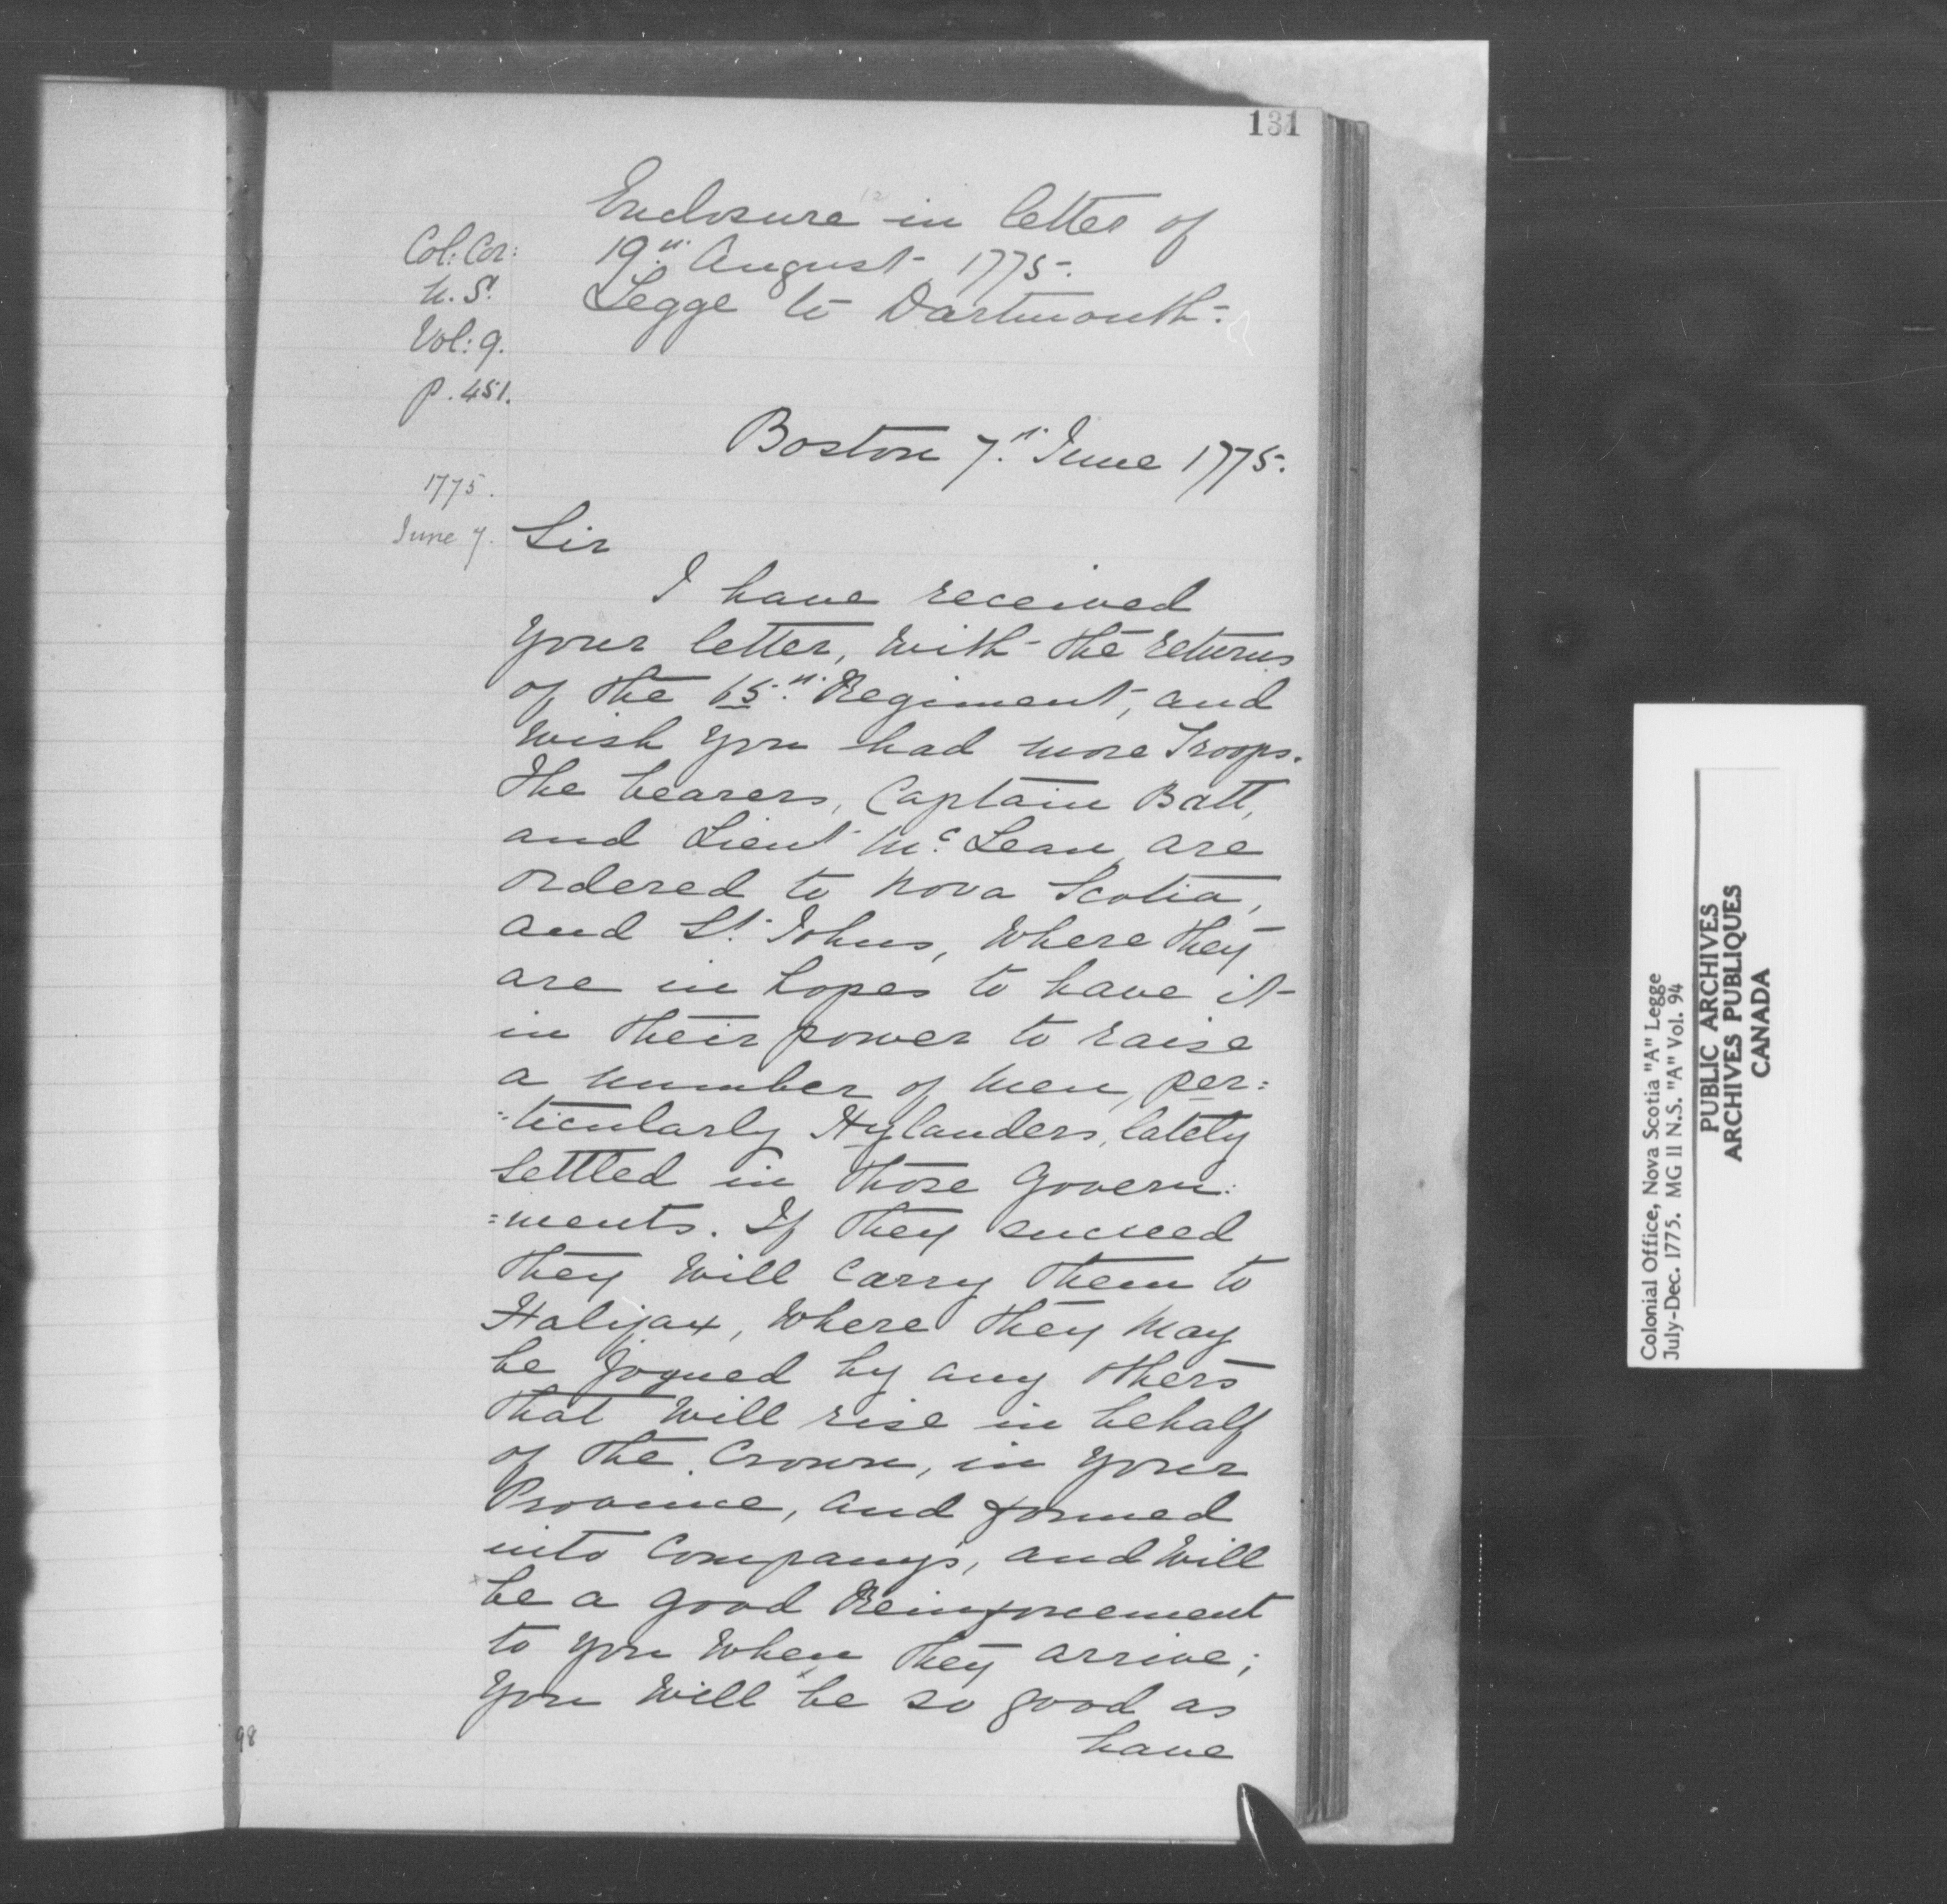 131
Enclosure in letter of
19th August 1775.
Legge to Dartmouth.
Col: Cor:
N. S.
Vol: 9.
p. 451.
Boston 7th June 1775.
1775.
June 7.
Sir
I have received
your letter, with the returns
of the 65th Regiment, and
wish you had more Troops.
The bearers, Captain Batt,
and Lieut Mc Lean are
ordered to Nova Scotia,
and St. Johns, where they
are in hopes to have it
in their power to raise
a number of men, per:
:ticularly Hylanders, lately
settled in those Govern:
:ments. If they succeed
they will carry them to
Halifax, where they may
be joyned by any others
that will rise in behalf
of the Crown, in your
Province, and formed
into Company's, and will
be a good Reinforcement
to you when they arrive;
you will be so good as
have
98
Colonial Office, Nova Scotia "A" Legge
July-Dec. 1775. MG 11 N.S. "A" Vol. 94
PUBLIC ARCHIVES
ARCHIVES PUBLIQUES
CANADA